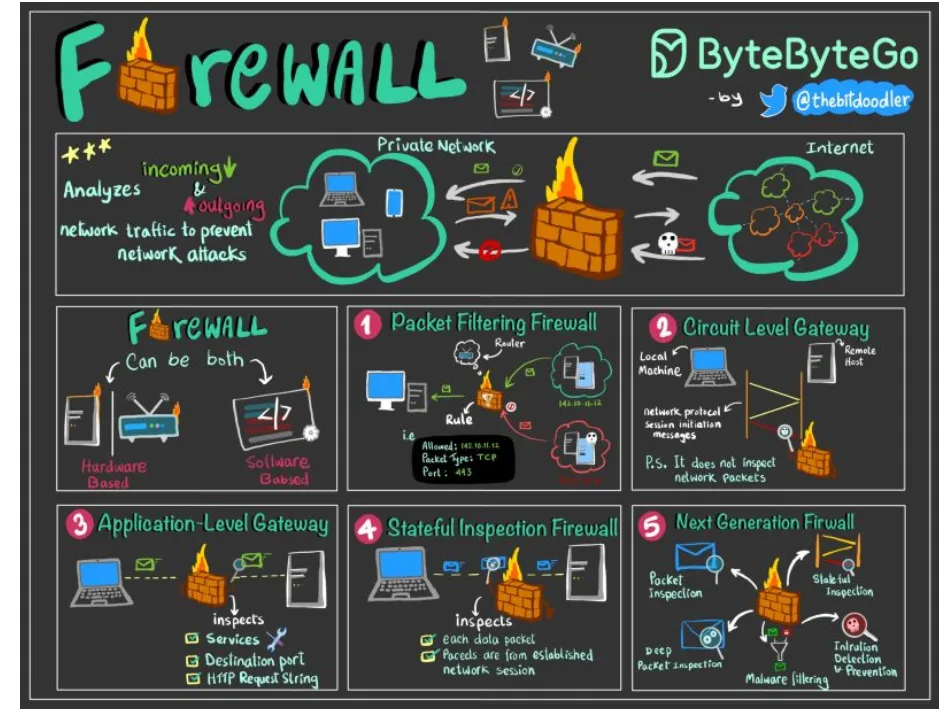 FiREWALL
ByteByteGo
-by @thebitdoodler
Analyzes incoming & outgoing
network traffic to prevent
network attacks
Private Network
Internet
FiREWALL
Can be both
Hardware
Based
Software
Babsed
1 Packet Filtering Firewall
Router
142.10.11.12
Rule
i.e
Allowed: 142.10.11.12
Packet Type: TCP
Port: 443
2 Circuit Level Gateway
Local
Machine
Remote
Host
network protocol
session initiation
messages
P.S. It does not inspect
network packets
3 Application-Level Gateway
inspects
Services
Destination port
HTTP Request String
4 Stateful Inspection Firewall
inspects
each data packet
Paceds are from established
network session
5 Next Generation Firwall
Packet
Inspection
Stateful
Inspection
Deep
Packet Inspection
Malware filtering
Intrution
Detection
& Prevention